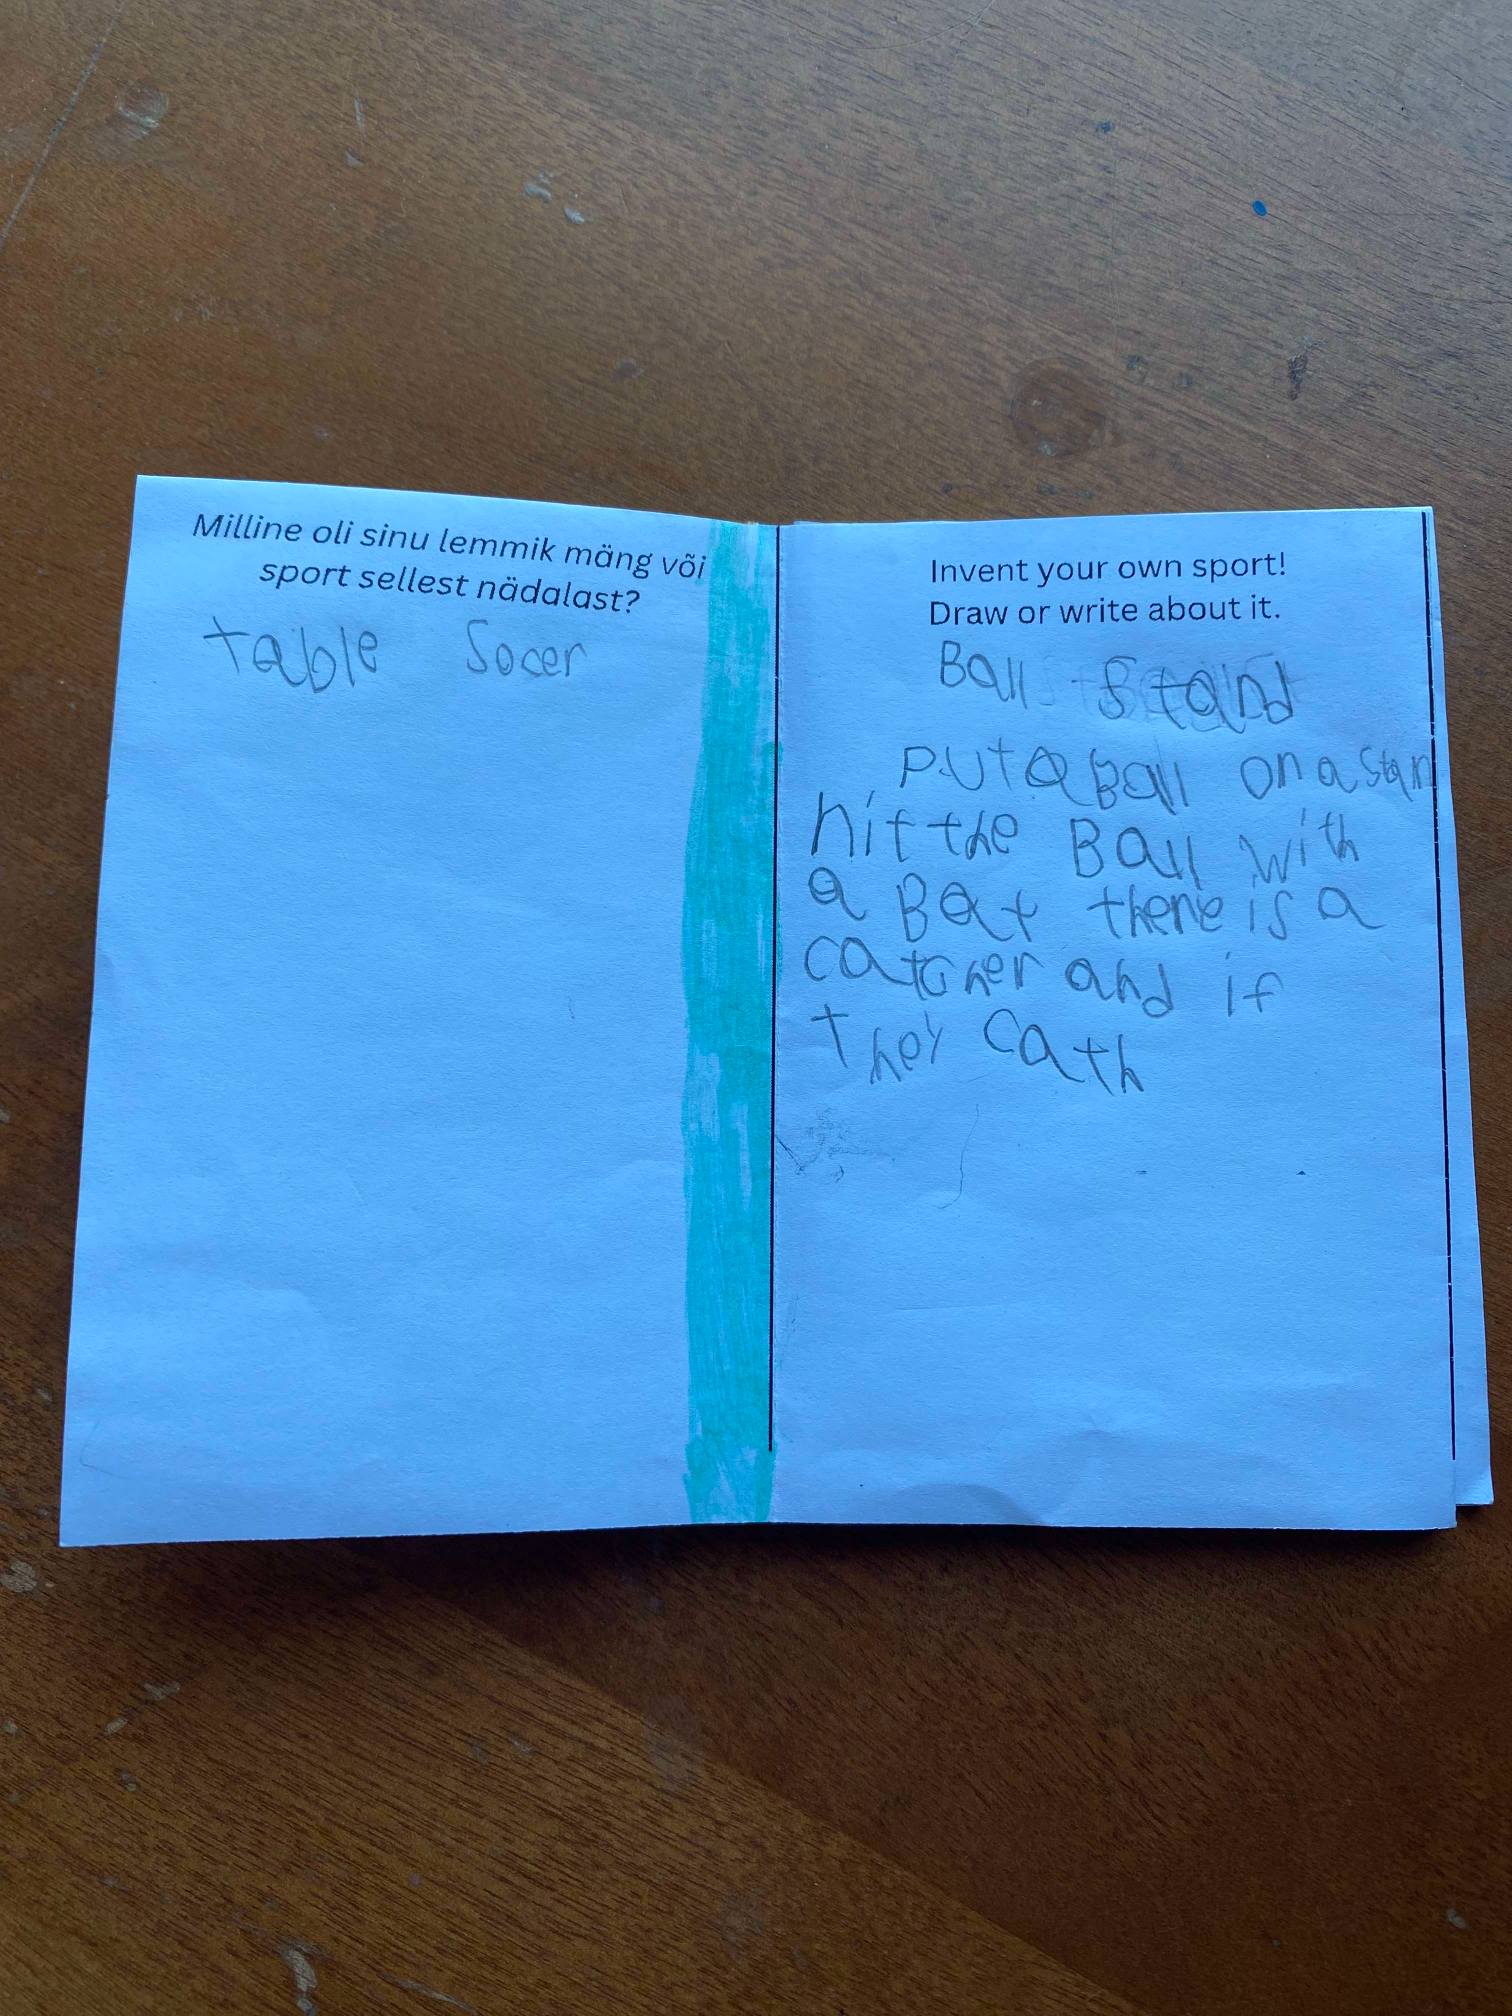 Milline oli sinu lemmik mäng või
sport sellest nädalast?
table Socer
Invent your own sport!
Draw or write about it.
Ball Stand
PUT a Ball on a Stan
hit the Ball with
a Bat there is a
catcher and if
they cath